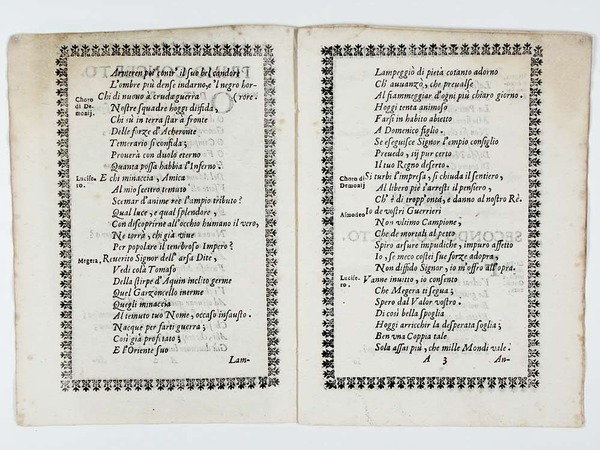 Armeren poi contr' il suo bel candore
L'ombre più dense indarno, e 'l negro hor-
(rore.
Choro di Demonij.
Chi di nuouo à cruda guerra
Nostre squadre hoggi disfida,
Chi sù in terra star à fronte
Delle forze d'Acheronte
Temerario si confida;
Prouerà con duolo eterno
Quanta possa habbia l'Inferno.
Lucifero.
E chi minaccia, Amica
Al mio scettro temuto
Scemar d'anime ree l'ampio tributo?
Qual luce, e qual splendore,
Con discoprirne all'occhio humano il vero,
Ne torrà, chi già viue
Per popolare il tenebroso Impero?
Megera.
Reuerito Signor dell'arsa Dite,
Vedi colà Tomaso
Della stirpe d'Aquin inclito germe
Quel Garzoncello inerme
Quegli minaccia
Al temuto tuo Nome, occaso infausto.
Nacque per farti guerra;
Così già profitato;
E l'Oriente suo
Lam-
Lampeggiò di pietà cotanto adorno
Ch'auuanzò, che preualse
Al fiammeggiar d'ogni più chiaro giorno.
Hoggi tenta animoso
Farsi in habito abietto
A Domenico figlio.
Se eseguisce Signor l'empio consiglio
Preuedo, sij pur certo
Il tuo Regno deserto.
Choro di Demonij
Si turbi l'impresa, si chiuda il sentiero,
Al libero piè s'arresti il pensiero,
Ch'è di tropp'onta, e danno al nostro Rè.
Asmodeo
Io de vostri Guerrieri
Non vltimo Campione,
Che de mortali al petto
Spiro arsure impudiche, impuro affetto
Io, se meco costei sue forze adopra,
Non diffido Signor, io m'offro all'opra.
Lucifero.
Vanne inuitto, io consento
Che Megera ti segua;
Spero dal Valor vostro.
Di così bella spoglia
Hoggi arricchir la desperata soglia;
Ben vna Coppia tale
Sola assai più, che mille Mondi vale.
A 3 An-